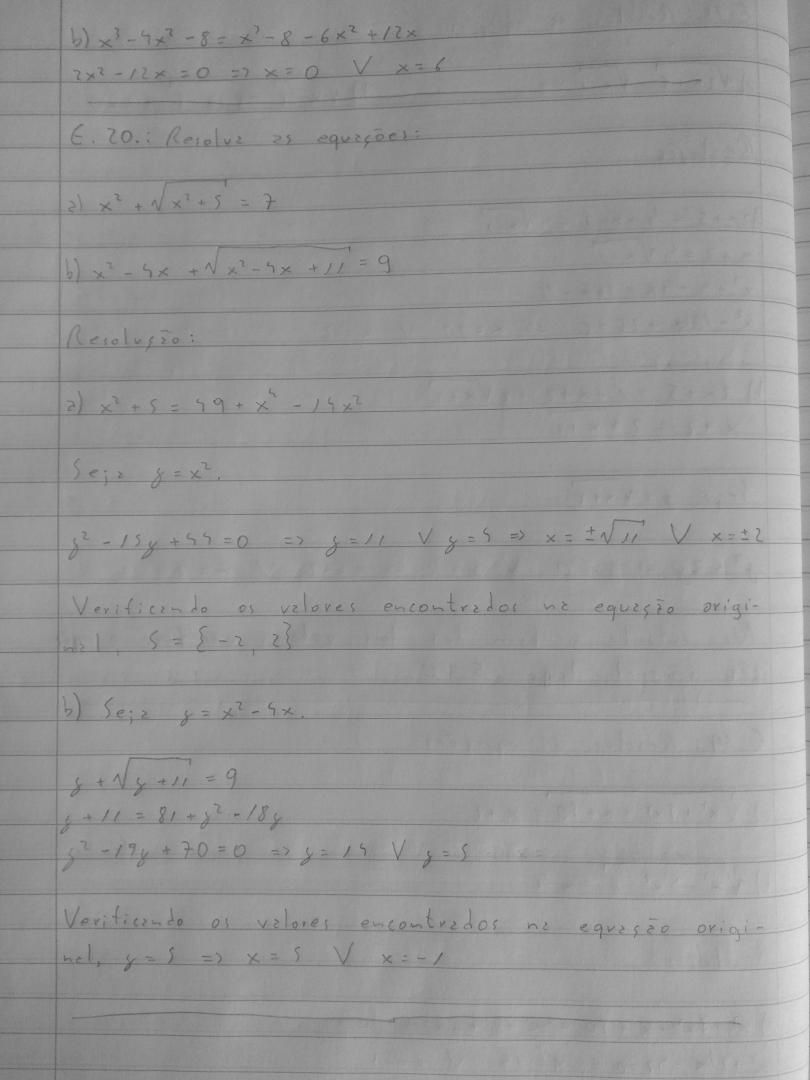 b) x³ - 4x² - 8 = x³ - 8 - 6x² + 12x
2x² - 12x = 0 => x = 0 V x = 6
E. 20.: Resolva as equações:
a) x² + √(x² + 5) = 7
b) x² - 4x + √(x² - 4x + 11) = 9
Resolução:
a) x² + 5 = 49 + x⁴ - 14x²
Seja y = x².
y² - 15y + 44 = 0 => y = 11 V y = 4 => x = ±√11 V x = ±2
Verificando os valores encontrados na equação origi-
nal, S = {-2, 2}
b) Seja y = x² - 4x.
y + √(y + 11) = 9
y + 11 = 81 + y² - 18y
y² - 19y + 70 = 0 => y = 14 V y = 5
Verificando os valores encontrados na equação origi-
nal, y = 5 => x = 5 V x = -1